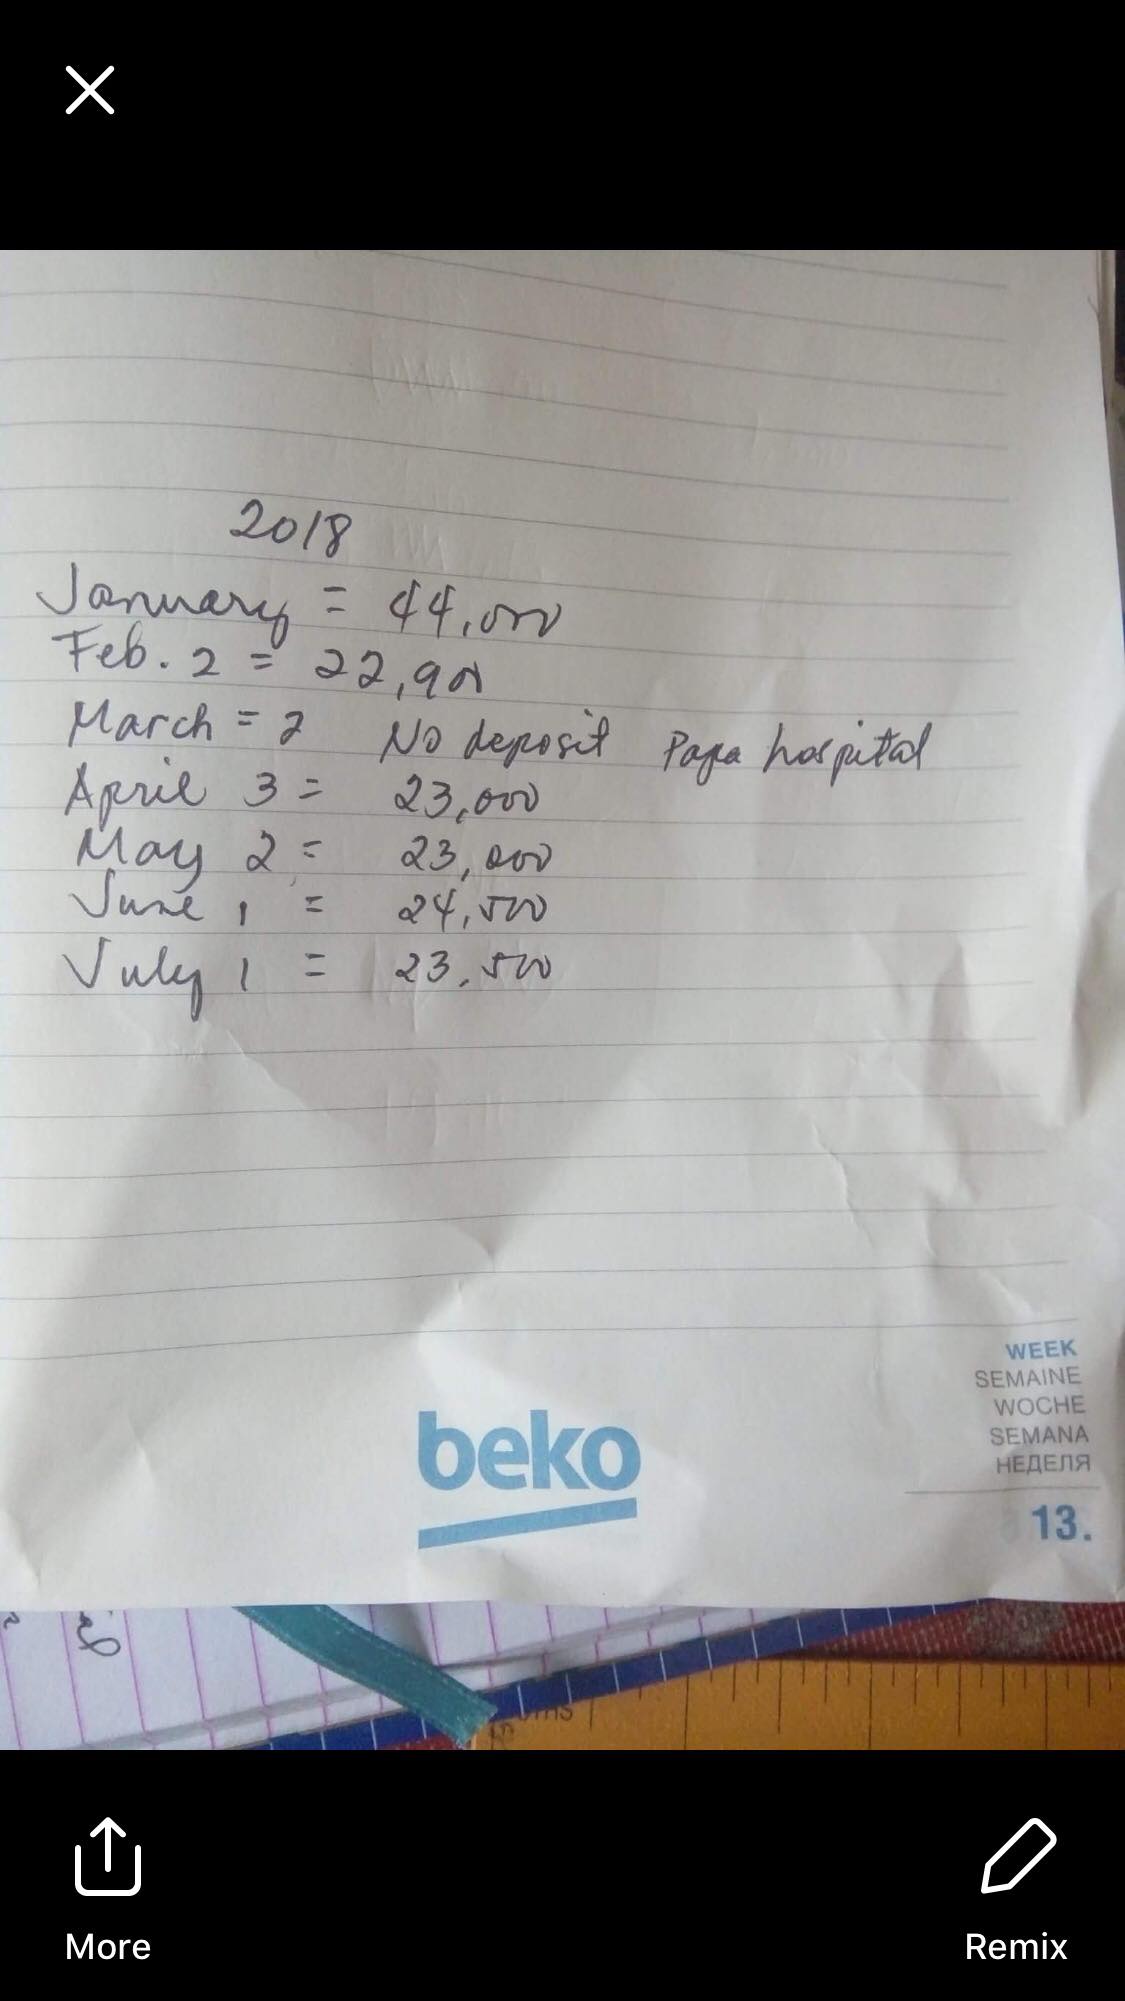 2018
January = 44,000
Feb. 2 = 22,900
March = 2 No deposit Papa hospital
April 3 = 23,000
May 2 = 23,000
June 1 = 24,500
July 1 = 23,500
beko
WEEK
SEMAINE
WOCHE
SEMANA
НЕДЕЛЯ
13.
More
Remix